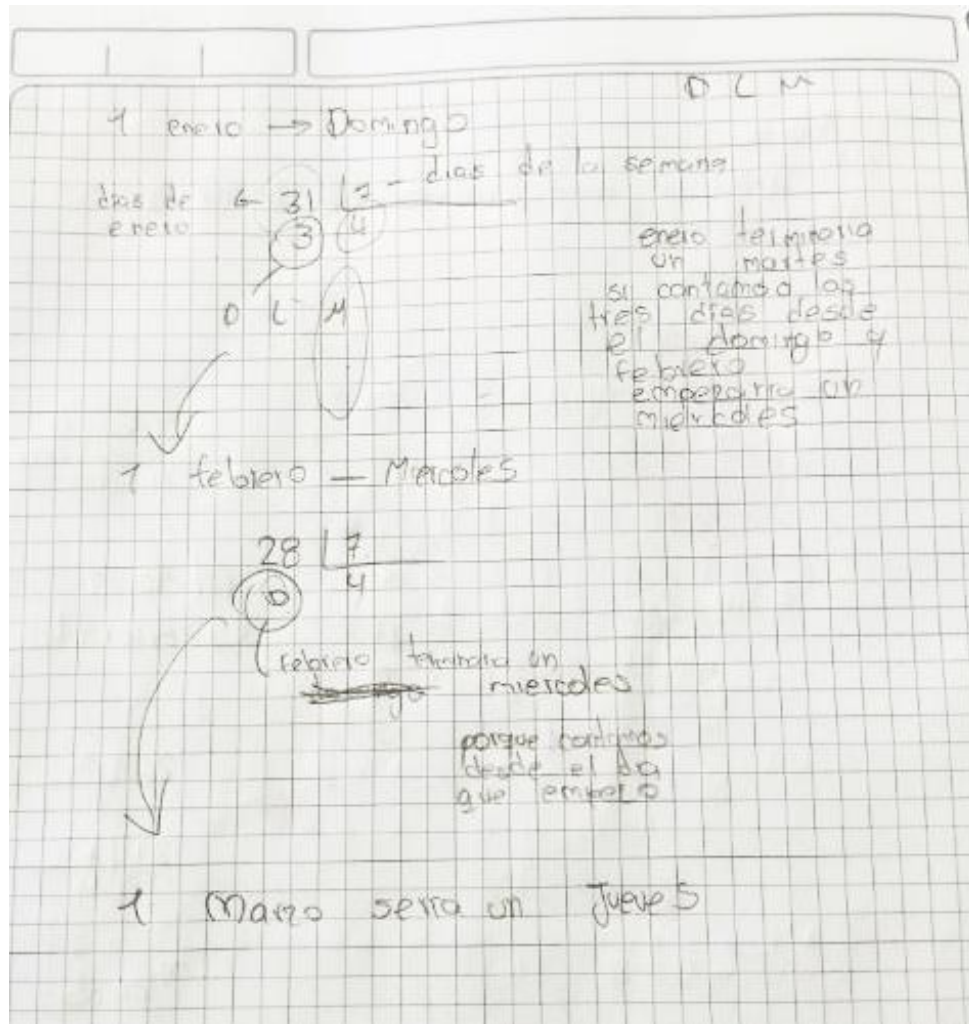 D L M
1 enero → Domingo
dias de enero ← 31 | 7 - dias de la semana
3 4
D L M
enero terminaria
un martes
si contamos los
tres dias desde
el domingo y
febrero
empezaria un
miercoles
1 febrero — Miercoles
28 | 7
0 4
febrero terminaria un
miercoles
porque contamos
desde el dia
que empezo
1 Marzo seria un Jueves